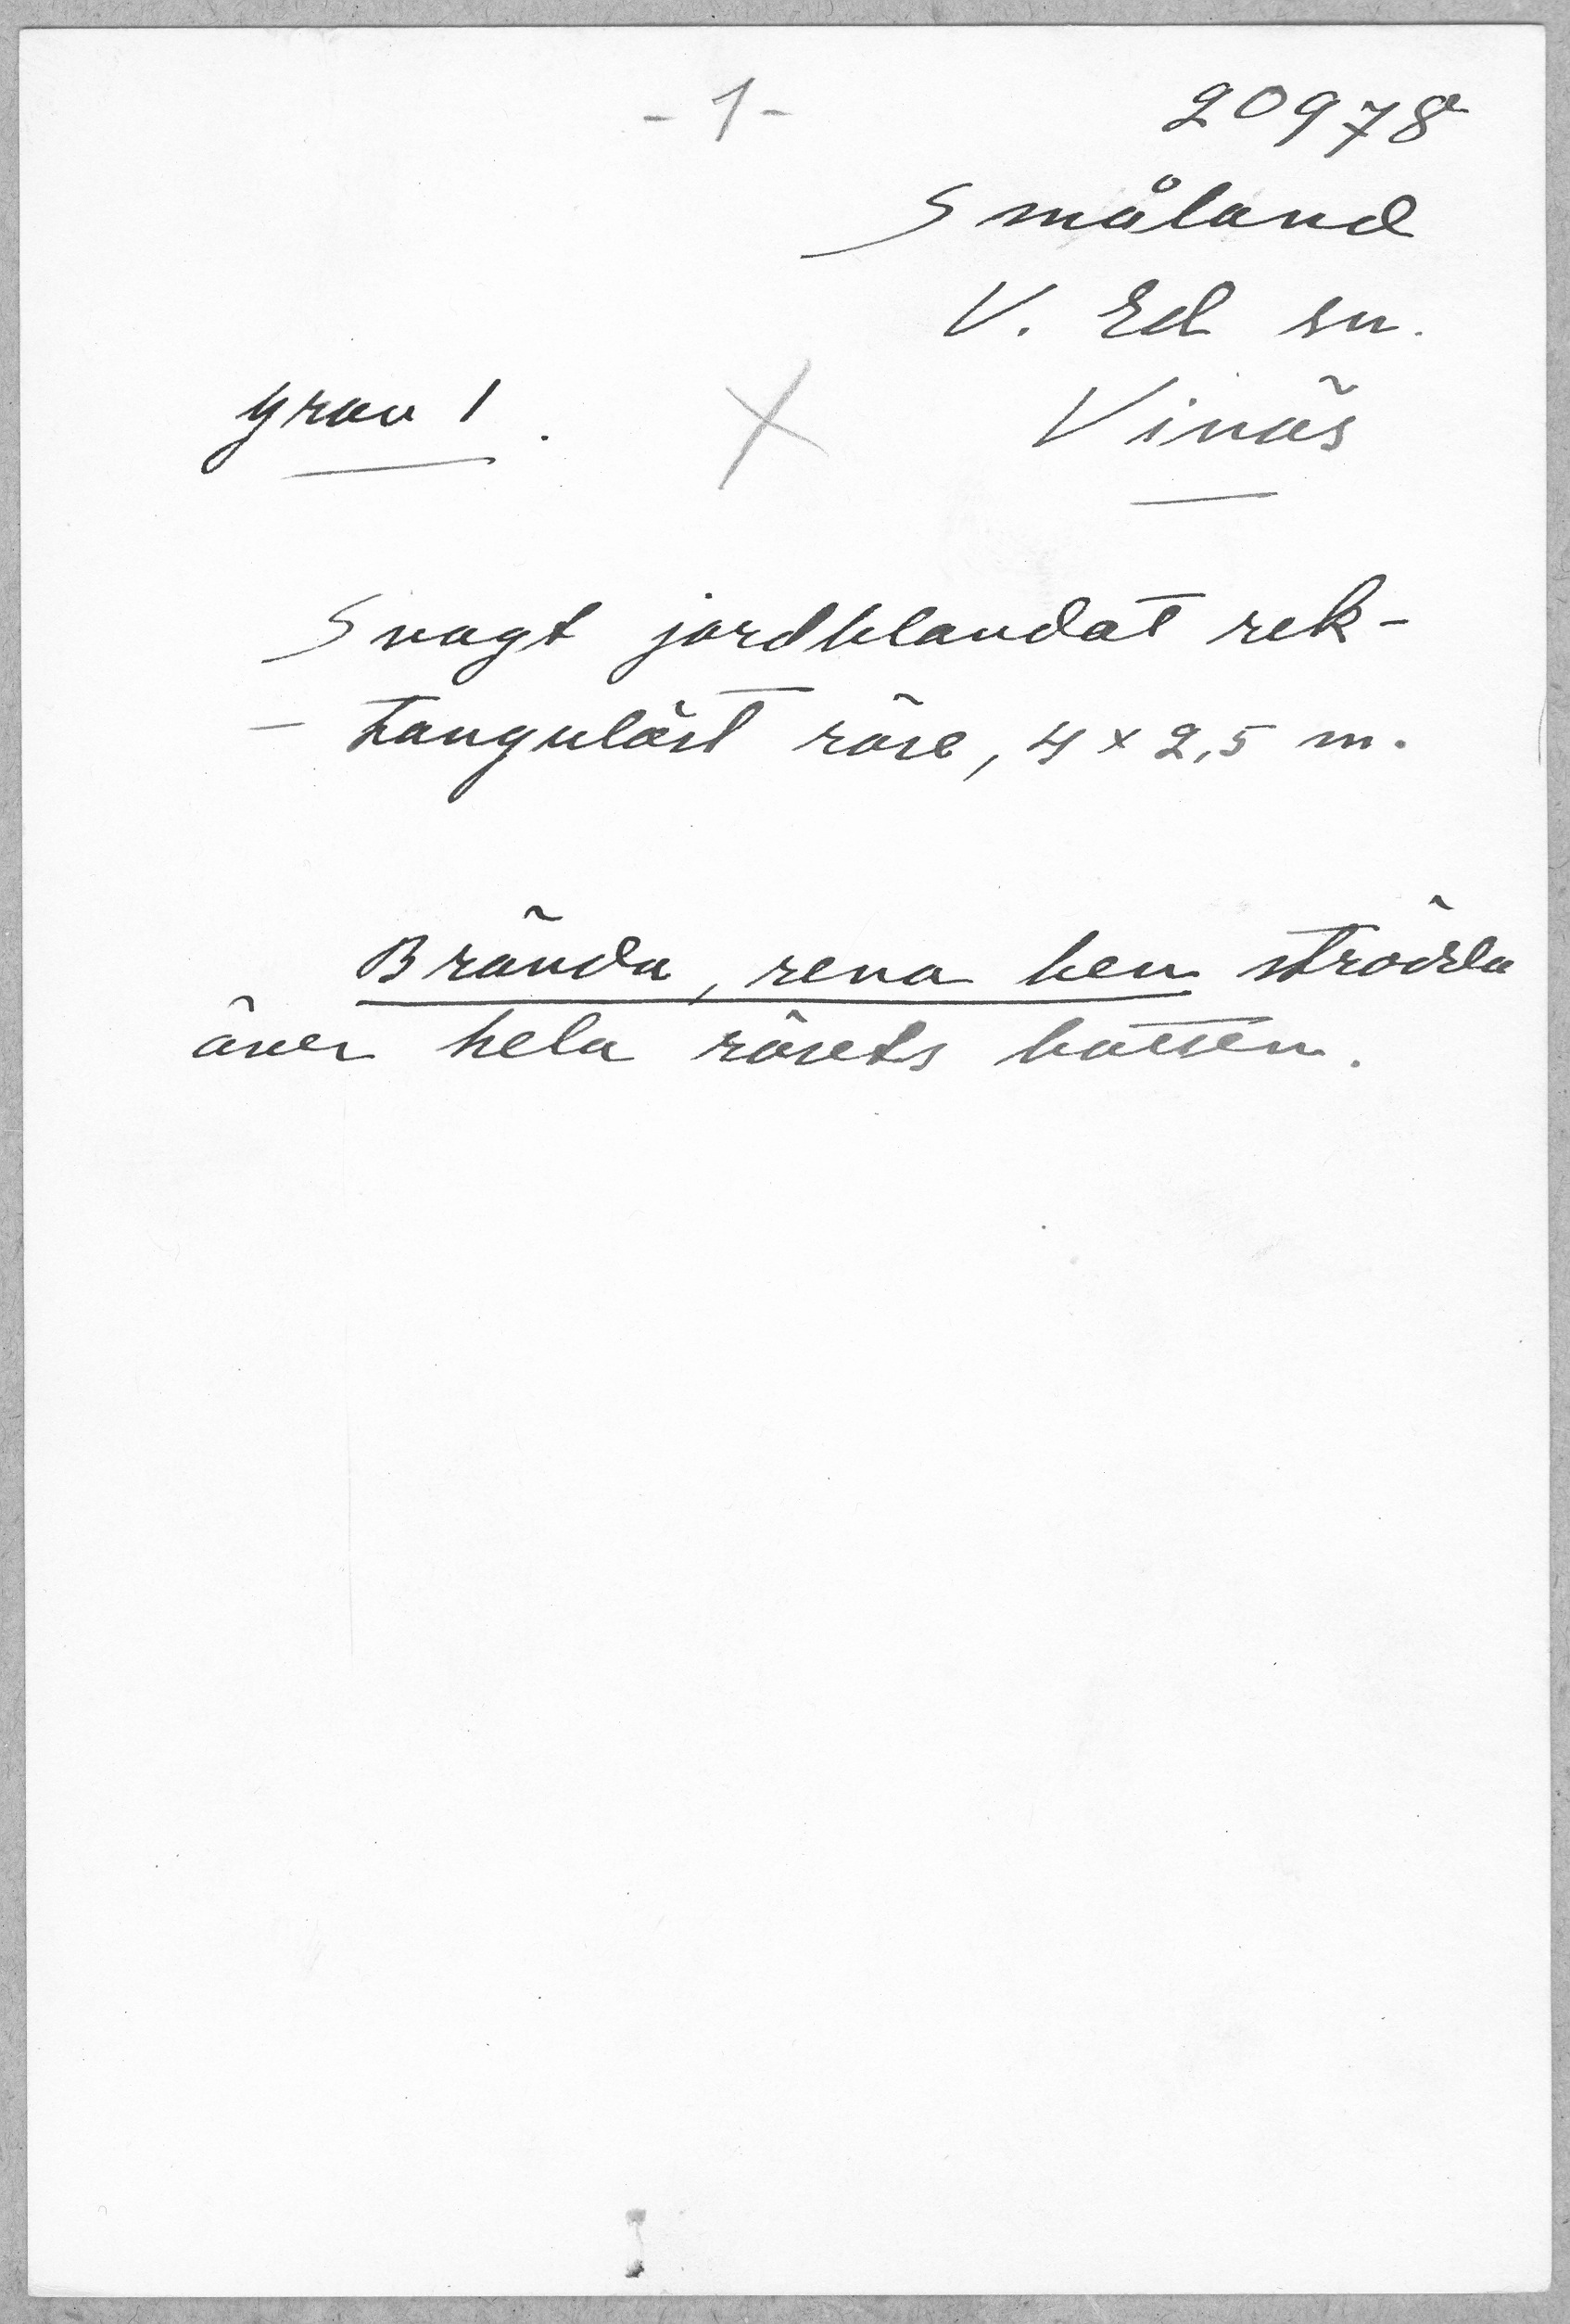 - 1 -
20978
Småland
V. Ed sn.
Grav 1.
X
Vinäs
Svagt jordblandat rek-
- tangulärt röse, 4 x 2,5 m.
Brända, rena ben strödda
över hela rösets botten.